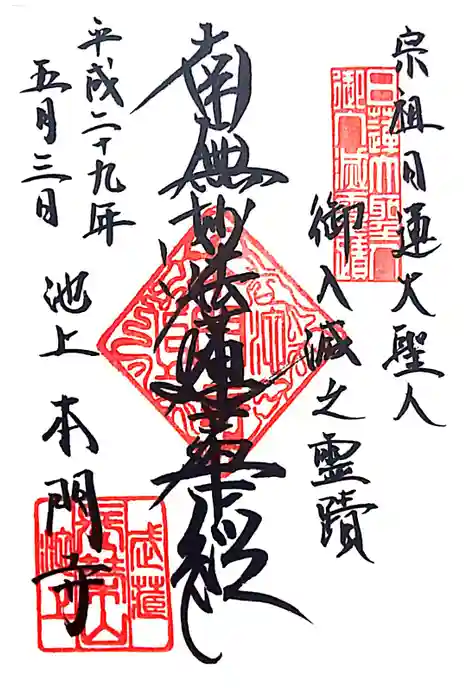 宗祖日蓮大聖人
御入滅之霊蹟
日蓮大聖人
御入滅霊蹟
南無妙法蓮華経
平成二十九年
五月三日
池上 本門寺